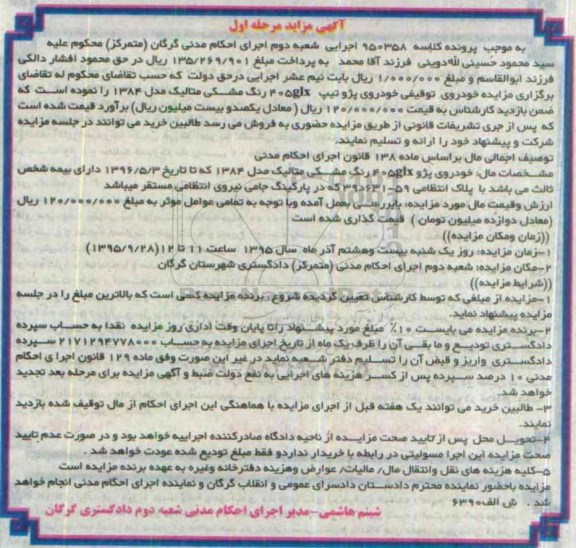 آگهی مزاید مرحله اول
به موجب پرونده کلاسه ۹۵۰۳۵۸ اجرایی شعبه دوم اجرای احکام مدنی گرگان (متمرکز) محکوم علیه
سید محمود حسینی لله دوینی فرزند آقا محمد به پرداخت مبلغ ۱۳۵/۲۶۹/۹۰۱ ریال در حق محمود افشار دالکی
فرزند ابوالقاسم و مبلغ ۱/۰۰۰/۰۰۰ ریال بابت نیم عشر اجرایی درحق دولت که حسب تقاضای محکوم له تقاضای
برگزاری مزایده خودروی توقیفی خودروی پژو تیپ ۴۰۵glx رنگ مشکی متالیک مدل ۱۳۸۴ را نموده است که
ضمن بازدید کارشناس به قیمت ۱۲۰/۰۰۰/۰۰۰ ریال ( معادل یکصدو بیست میلیون ریال) برآورد قیمت شده است
که پس از جری تشریفات قانونی از طریق مزایده حضوری به فروش می رسد طالبین خرید می توانند در جلسه مزایده
شرکت و پیشنهاد خود را ارائه و تسلیم نمایند.
توصیف اجمالی مال براساس ماده ۱۳۸ قانون اجرای احکام مدنی
مشخصات مال: خودروی پژو ۴۰۵glx رنگ مشکی متالیک مدل ۱۳۸۴ که تا تاریخ ۱۳۹۶/۵/۳ دارای بیمه شخص
ثالث می باشد با پلاک انتظامی ۵۹-۶۳۱د۳۹ که در پارکینگ جامی نیروی انتظامی مستقر میباشد
ارزش وقیمت مال مورد مزایده: بابررسی بعمل آمده وبا توجه به تمامی عوامل موثر به مبلغ ۱۲۰/۰۰۰/۰۰۰ ریال
(معادل دوازده میلیون تومان ) قیمت گذاری شده است
((زمان ومکان مزایده))
۱-زمان مزایده: روز یک شنبه بیست وهشتم آذر ماه سال ۱۳۹۵ ساعت ۱۱ تا ۱۲(۱۳۹۵/۹/۲۸)
۲-مکان مزایده: شعبه دوم اجرای احکام مدنی (متمرکز) دادگستری شهرستان گرگان
((شرایط مزایده))
۱-مزایده از مبلغی که توسط کارشناس تعیین گردیده شروع ، برنده مزایده کسی است که بالاترین مبلغ را در جلسه
مزایده پیشنهاد نماید.
۲-برنده مزایده می بایست ۱۰٪ مبلغ مورد پیشنهاد راتا پایان وقت اداری روز مزایده نقدا به حساب سپرده
دادگستری تودیع و ما بقی آن را ظرف یک ماه از تاریخ اجرای مزایده به حساب ۲۱۷۱۲۹۴۷۷۸۰۰۰ سپرده
دادگستری واریز و قبض آن را تسلیم دفتر شعبه نماید در غیر این صورت وفق ماده ۱۲۹ قانون اجرا ی احکام
مدنی ۱۰ درصد سپرده پس از کسر هزینه های اجرایی به نفع دولت ضبط و آگهی مزایده برای مرحله بعد تجدید
خواهد شد.
۳- طالبین خرید می توانند یک هفته قبل از اجرای مزایده با هماهنگی این اجرای احکام از مال توقیف شده بازدید
نمایند.
۴-تحویل محل پس از تایید صحت مزایده از ناحیه دادگاه صادرکننده اجراییه خواهد بود و در صورت عدم تایید
صحت مزایده این اجرا مسولیتی در رابطه با خریدار نداردو فقط مبلغ تودیع شده عودت خواهد شد .
۵-کلیه هزینه های نقل وانتقال مال/ مالیات/ عوارض وهزینه دفترخانه وغیره به عهده برنده مزایده است
مزایده باحضور نماینده محترم دادستان دادسرای عمومی و انقلاب گرگان و نماینده اجرای احکام مدنی انجام خواهد
شد . ش الف۶۳۹۰
شبنم هاشمی-مدیر اجرای احکام مدنی شعبه دوم دادگستری گرگان